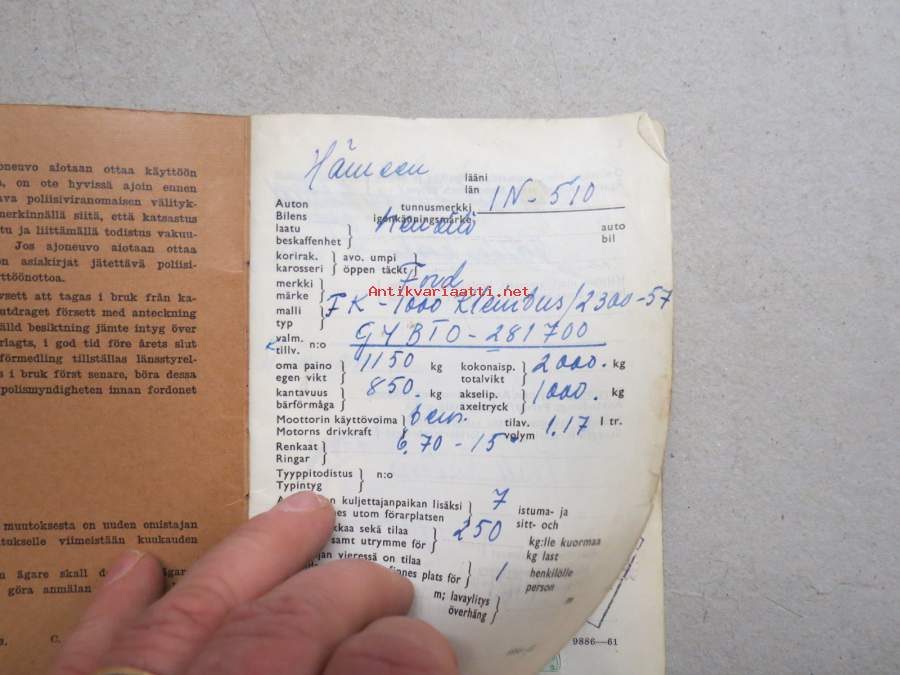 joneuvo aiotaan ottaa käyttöön
on ote hyvissä ajoin ennen
poliisiviranomaisen välityk-
merkinnällä siitä, että katsastus
tu ja liittämällä todistus vakuu-
Jos ajoneuvo aiotaan ottaa
asiakirjat jätettävä poliisi-
yttöönottoa.
vsett att tagas i bruk från ka-
utdraget försett med anteckning
älld besiktning jämte intyg över
rlagts, i god tid före årets slut
förmedling tillställas länsstyrel-
i bruk först senare, böra dessa
polismyndigheten innan fordonet
muutoksesta on uuden omistajan
itukselle viimeistään kuukauden
ägare skall
göra anmälan
C.
Hämeen lääni
län
Auton tunnusmerkki IN-510
Bilens igenkänningsmärke
laatu auto
beskaffenhet bil
korirak. avo. umpi
karosseri öppen täckt
merkki Ford
märke
Antikvariaatti.net
malli FK-1000 Kleinbus/2300-57
typ
valm. n:o GYBTO-281700
tillv.
oma paino 1150 kg kokonaisp. 2000. kg
egen vikt totalvikt
kantavuus 850. kg akselip. 1000. kg
bärförmåga axeltryck
Moottorin käyttövoima bens. tilav. 1.17 l tr.
Motorns drivkraft volym
Renkaat 6.70-15"
Ringar
Tyyppitodistus n:o
Typintyg
kuljettajanpaikan lisäksi 7 istuma- ja
utom förarplatsen sitt- och
sekä tilaa 250 kg:lle kuormaa
samt utrymme för kg last
vieressä on tilaa 1 henkilölle
finnes plats för person
m; lavaylitys m
överhäng
9886—61